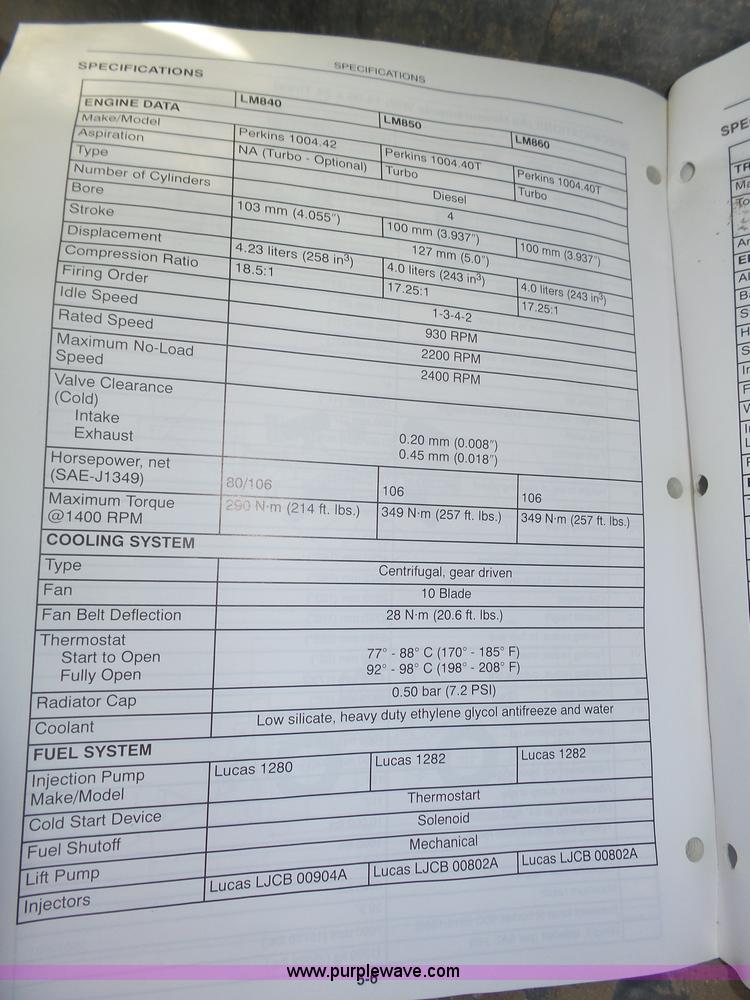 SPECIFICATIONS
SPECIFICATIONS
ENGINE DATA LM840 LM850 LM860
Make/Model Perkins 1004.42 Perkins 1004.40T Perkins 1004.40T
Aspiration NA (Turbo - Optional) Turbo Turbo
Type Diesel
Number of Cylinders 4
Bore 103 mm (4.055″) 100 mm (3.937″) 100 mm (3.937″)
Stroke 127 mm (5.0″)
Displacement 4.23 liters (258 in³) 4.0 liters (243 in³) 4.0 liters (243 in³)
Compression Ratio 18.5:1 17.25:1 17.25:1
Firing Order 1-3-4-2
Idle Speed 930 RPM
Rated Speed 2200 RPM
Maximum No-Load
Speed 2400 RPM
Valve Clearance
(Cold)
Intake 0.20 mm (0.008″)
Exhaust 0.45 mm (0.018″)
Horsepower, net
(SAE-J1349) 80/106 106 106
Maximum Torque 290 N·m (214 ft. lbs.) 349 N·m (257 ft. lbs.) 349 N·m (257 ft. lbs.)
@1400 RPM
COOLING SYSTEM
Type Centrifugal, gear driven
Fan 10 Blade
Fan Belt Deflection 28 N·m (20.6 ft. lbs.)
Thermostat
Start to Open 77° - 88° C (170° - 185° F)
Fully Open 92° - 98° C (198° - 208° F)
Radiator Cap 0.50 bar (7.2 PSI)
Coolant Low silicate, heavy duty ethylene glycol antifreeze and water
FUEL SYSTEM
Injection Pump Lucas 1280 Lucas 1282 Lucas 1282
Make/Model
Cold Start Device Thermostart
Fuel Shutoff Solenoid
Lift Pump Mechanical
Injectors Lucas LJCB 00904A Lucas LJCB 00802A Lucas LJCB 00802A
5-6
www.purplewave.com